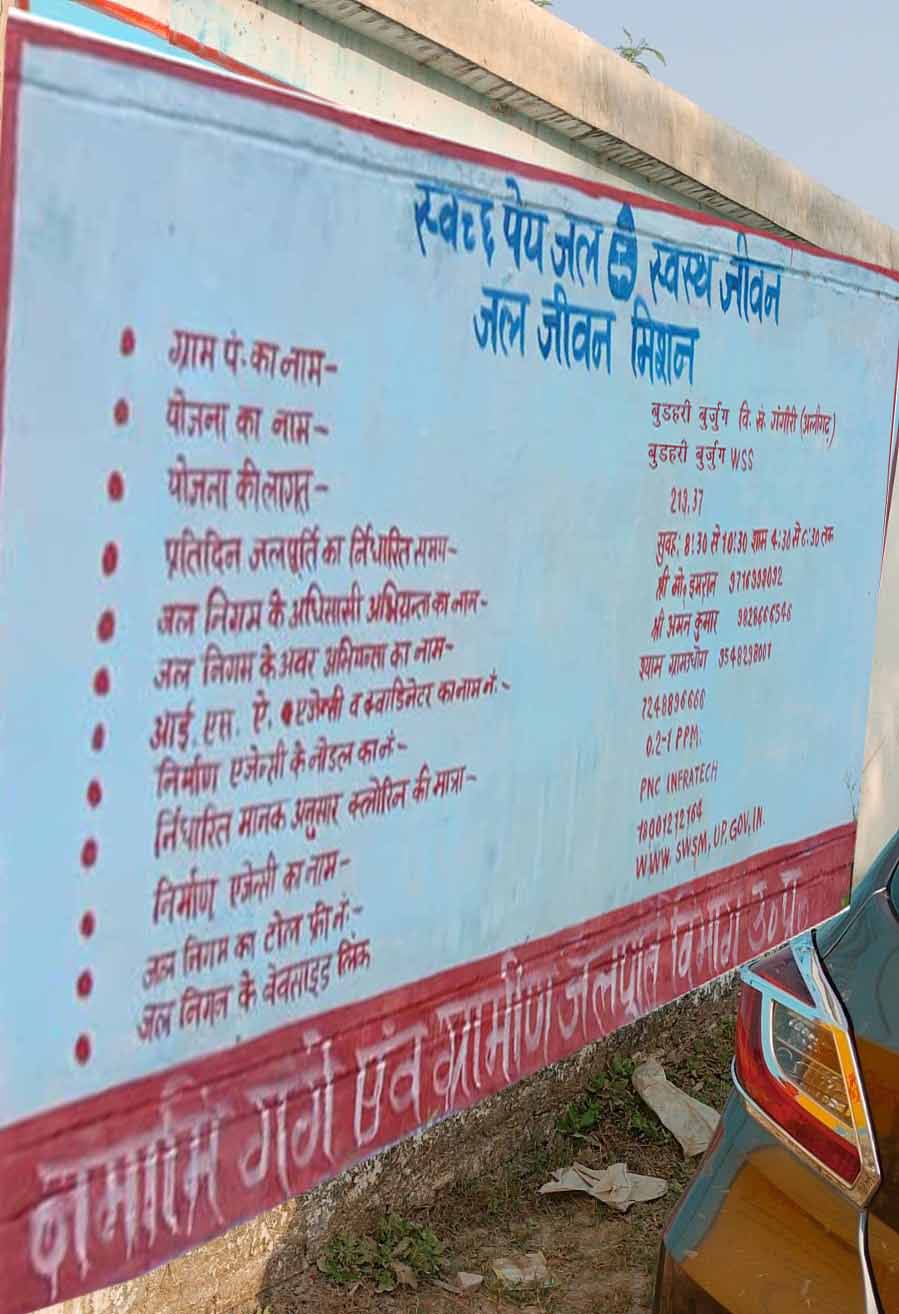 स्वच्छ पेय जल स्वस्थ जीवन
जल जीवन मिशन
ग्राम पं. का नाम- बुडहरी बुर्जुग वि. खं. गंगीरी (अलीगढ़)
योजना का नाम- बुडहरी बुर्जुग WSS
योजना की लागत- 219.37
प्रतिदिन जलपूर्ति का र्निधारित समय- सुवह: 8:30 से 10:30 शाम 4:30 से 6:30 तक
जल निगम के अधिसासी अभियन्ता का नाम- श्री मो. इमरान
जल निगम के अवर अभियन्ता का नाम- श्री अमन कुमार 9828666546
आई. एस. ऐ. एजेन्सी व क्वाडिनेटर का नाम नं.- श्याम ग्रामउधोग 9548298001
निर्माण एजेन्सी के नोडल का नं:- 7248896666
र्निधारित मानक अनुसार क्लोरिन की मात्रा- 0.2-1 PPM.
निर्माण एजेन्सी का नाम- PNC INFRATECH
जल निगम का टोल फ्री नं:- 18001212164
जल निगम के वेवसाइड लिंक WWW. SWSM. UP. GOV. IN.
नमामि गंगे एंव ग्रामीण जलपूर्ति विभाग उ०प्र०